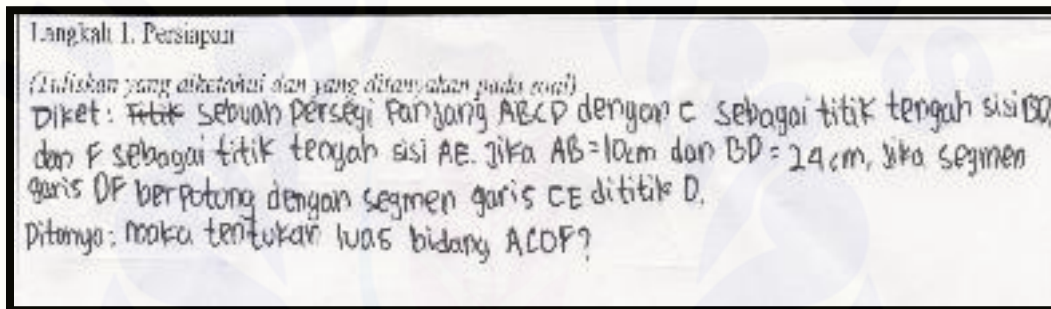 Langkah 1. Persiapan
(Tuliskan yang diketahui dan yang ditanyakan pada soal)
Diket: Titik sebuah persegi Panjang ABCD dengan C sebagai titik tengah sisi BD,
dan F sebagai titik tengah sisi AE. Jika AB=10cm dan BD = 24cm, jika segmen
garis DF berpotong dengan segmen garis CE dititik D.
Ditanya: maka tentukan luas bidang ACOF?